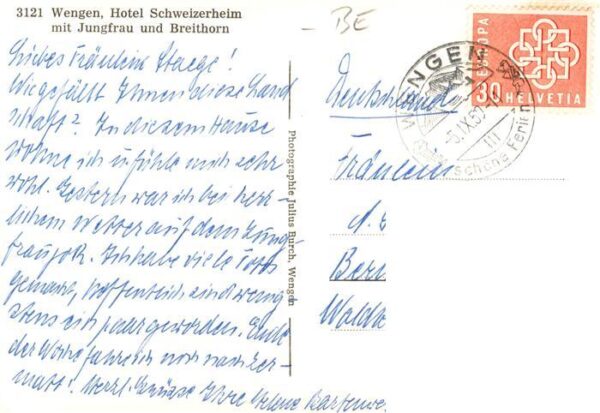 3121 Wengen, Hotel Schweizerheim
mit Jungfrau und Breithorn
BE
Liebes Fräulein Staege!
Wie gefällt Ihnen diese Land
schaft? In diesem Hause
wohne ich u. fühle mich sehr
wohl. Gestern war ich bei herr-
lichem Wetter auf dem Jung-
fraujoch. Ich habe viele Fotos
gemacht, hoffentlich sind wenig
stens ein paar geworden. Ende
der Woche fahre ich noch nach Zer-
matt! Herzl. Grüsse Ihre Helene
Photographie Julius Burch, Wengen
WENGEN
IX.59
III
schöne Ferien
EUROPA
30 HELVETIA
Deutschland
Fräulein
Berl
Walds